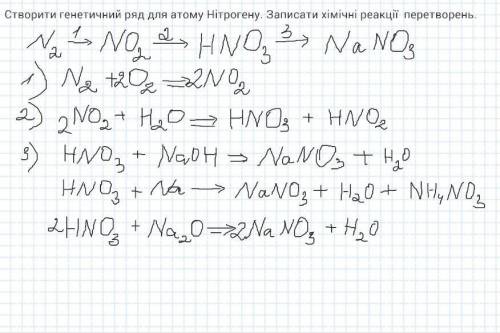 Створити генетичний ряд для атому Нітрогену. Записати хімічні реакції перетворень.
N₂ →¹ NO₂ →² HNO₃ →³ NaNO₃
1) N₂ + 2O₂ ⇒ 2NO₂
2) 2NO₂ + H₂O ⇒ HNO₃ + HNO₂
3) HNO₃ + NaOH ⇒ NaNO₃ + H₂O
HNO₃ + Na → NaNO₃ + H₂O + NH₄NO₃
2HNO₃ + Na₂O ⇒ 2NaNO₃ + H₂O